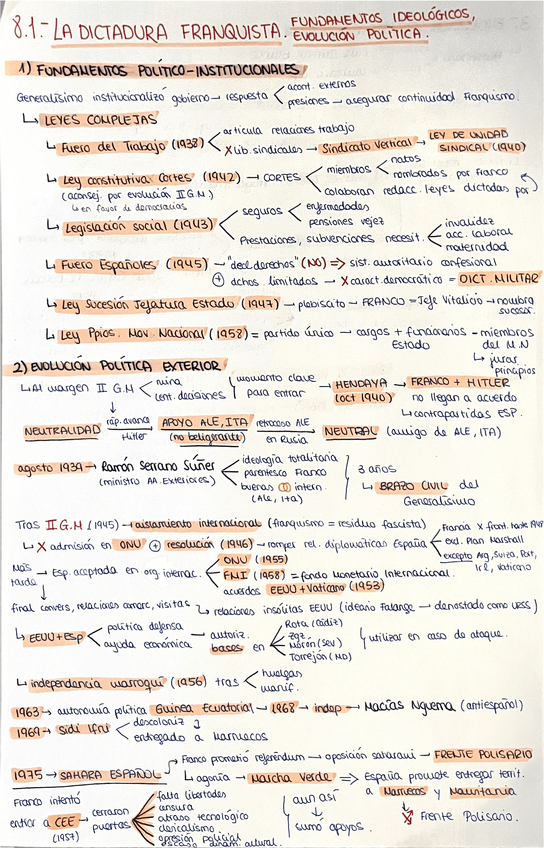 8.1.- LA DICTADURA FRANQUISTA. FUNDAMENTOS IDEOLÓGICOS,
EVOLUCIÓN POLÍTICA.
1) FUNDAMENTOS POLÍTICO-INSTITUCIONALES
acont. externos
Generalísimo institucionalizó gobierno → respuesta
presiones → asegurar continuidad Franquismo.
LEYES COMPLEJAS
articula relaciones trabajo
Fuero del Trabajo (1938)
X lib. sindicales → Sindicato Vertical → LEY DE UNIDAD
SINDICAL (1940)
Ley constitutiva Cortes (1942) → CORTES
miembros
natos
nombrados por Franco
(aconsej. por evolución II G.M)
en favor de democracias
colaboran redacc. leyes dictadas por
Legislación social (1943)
seguros
enfermedades
pensiones vejez
Prestaciones, subvenciones necesit.
invalidez
acc. laboral
maternidad
Fuero Españoles (1945) → "decl. derechos" (NO) => sist. autoritario confesional
+ dchos. limitados → X caract. democrático = DICT. MILITAR
Ley Sucesión Jefatura Estado (1947) → plebiscito → FRANCO = Jefe Vitalicio → nombra
sucesor.
Ley Ppios. Mov. Nacional (1958) = partido único → cargos + funcionarios - miembros
Estado
del M.N
jurar
principios
2) EVOLUCIÓN POLÍTICA EXTERIOR
Al margen II G.M
ruina
lent. decisiones
momento clave
para entrar
HENDAYA
(oct 1940)
FRANCO + HITLER
no llegan a acuerdo
contrapartidas ESP.
NEUTRALIDAD
ráp. avance
Hitler
APOYO ALE, ITA
(no beligerante)
retroceso ALE
en Rusia
NEUTRAL (amigo de ALE, ITA)
agosto 1939 → Ramón Serrano Súñer
(ministro AA. Exteriores)
ideología totalitaria
parentesco Franco
buenas intern.
(Ale, Ita)
3 años
BRAZO CIVIL del
Generalísimo
Tras II G.M (1945) → aislamiento internacional (franquismo = residuo fascista)
X admisión en ONU + resolución (1946) → romper rel. diplomáticas España
Francia X front.
excl. Plan Marshall
excepto Arg, Suiza, Port,
Irl, Vaticano
Más
tarde
Esp. aceptada en org. internac.
ONU (1955)
FMI (1958) = fondo Monetario Internacional.
acuerdos EEUU + Vaticano (1953)
final convers, relaciones comerc, visitas
relaciones insólitas EEUU (ideario Falange → denostado como URSS)
EEUU + Esp
política defensa
ayuda económica
autoriz.
bases en
Rota (Cádiz)
Zgz
Morón (Sev)
Torrejón (MD)
utilizar en caso de ataque.
independencia marroquí (1956) tras
huelgas
manif.
1963 → autonomía política Guinea Ecuatorial → 1968 → indep → Macías Nguema (antiespañol)
1969 → Sidi Ifni
descoloniz
entregado a Marruecos
1975 → SAHARA ESPAÑOL
Franco prometió referéndum → oposición saharaui → FRENTE POLISARIO
agonía → Marcha Verde => España promete entregar territ.
a Marruecos y Mauritania
X Frente Polisario.
Franco intentó
entrar a CEE
(1957)
cerraron
puertas
falta libertades
censura
atraso tecnológico
clericalismo
opresión policial
escaso dinam. cultural.
aun así
sumó apoyos.